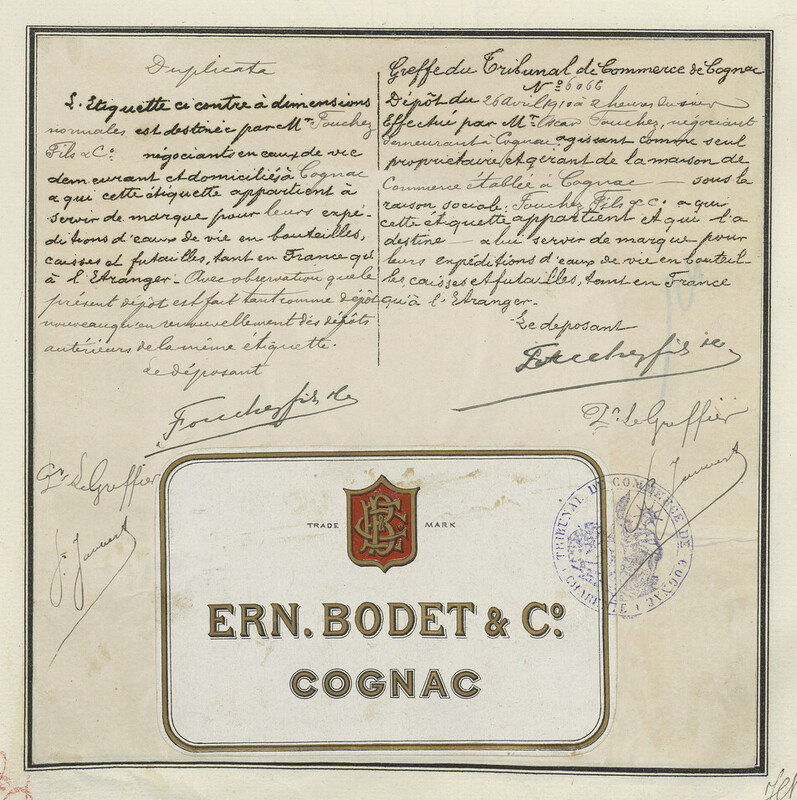 Duplicata
L'Etiquette ci contre à dimensions
normales est destinée par Mrs Fouchez
Fils & Co. négociants en eaux de vie
demeurant et domiciliés à Cognac
a qui cette étiquette appartient à
servir de marque pour leurs expé-
ditions d'eaux de vie en bouteilles,
caisses et futailles, tant en France qu'
à l'Etranger. Avec observation que le
présent dépôt est fait tant comme dépôt
nouveau qu'en renouvellement des dépôts
antérieurs de la même étiquette.
Le déposant
Fouchez fils & Co
Pr. Le Greffier
Greffe du Tribunal de Commerce de Cognac
No 6066
Dépôt du 26 avril 1910 à 2 heures du soir
Effectué par Mr. Oscar Fouchez, négociant
demeurant à Cognac, agissant comme seul
propriétaire et gérant de la maison de
Commerce établie à Cognac sous la
raison sociale. Fouchez Fils & Co. a qui
cette étiquette appartient et qui l'a
destine a lui servir de marque pour
leurs expéditions d'eaux de vie en bouteil-
les, caisses et futailles, tant en France
qu'à l'Etranger.
Le deposant
Fouchez fils & Co
Pr. Le Greffier
TRIBUNAL DE COMMERCE DE COGNAC
CHARENTE
TRADE MARK
ERN. BODET & Co.
COGNAC